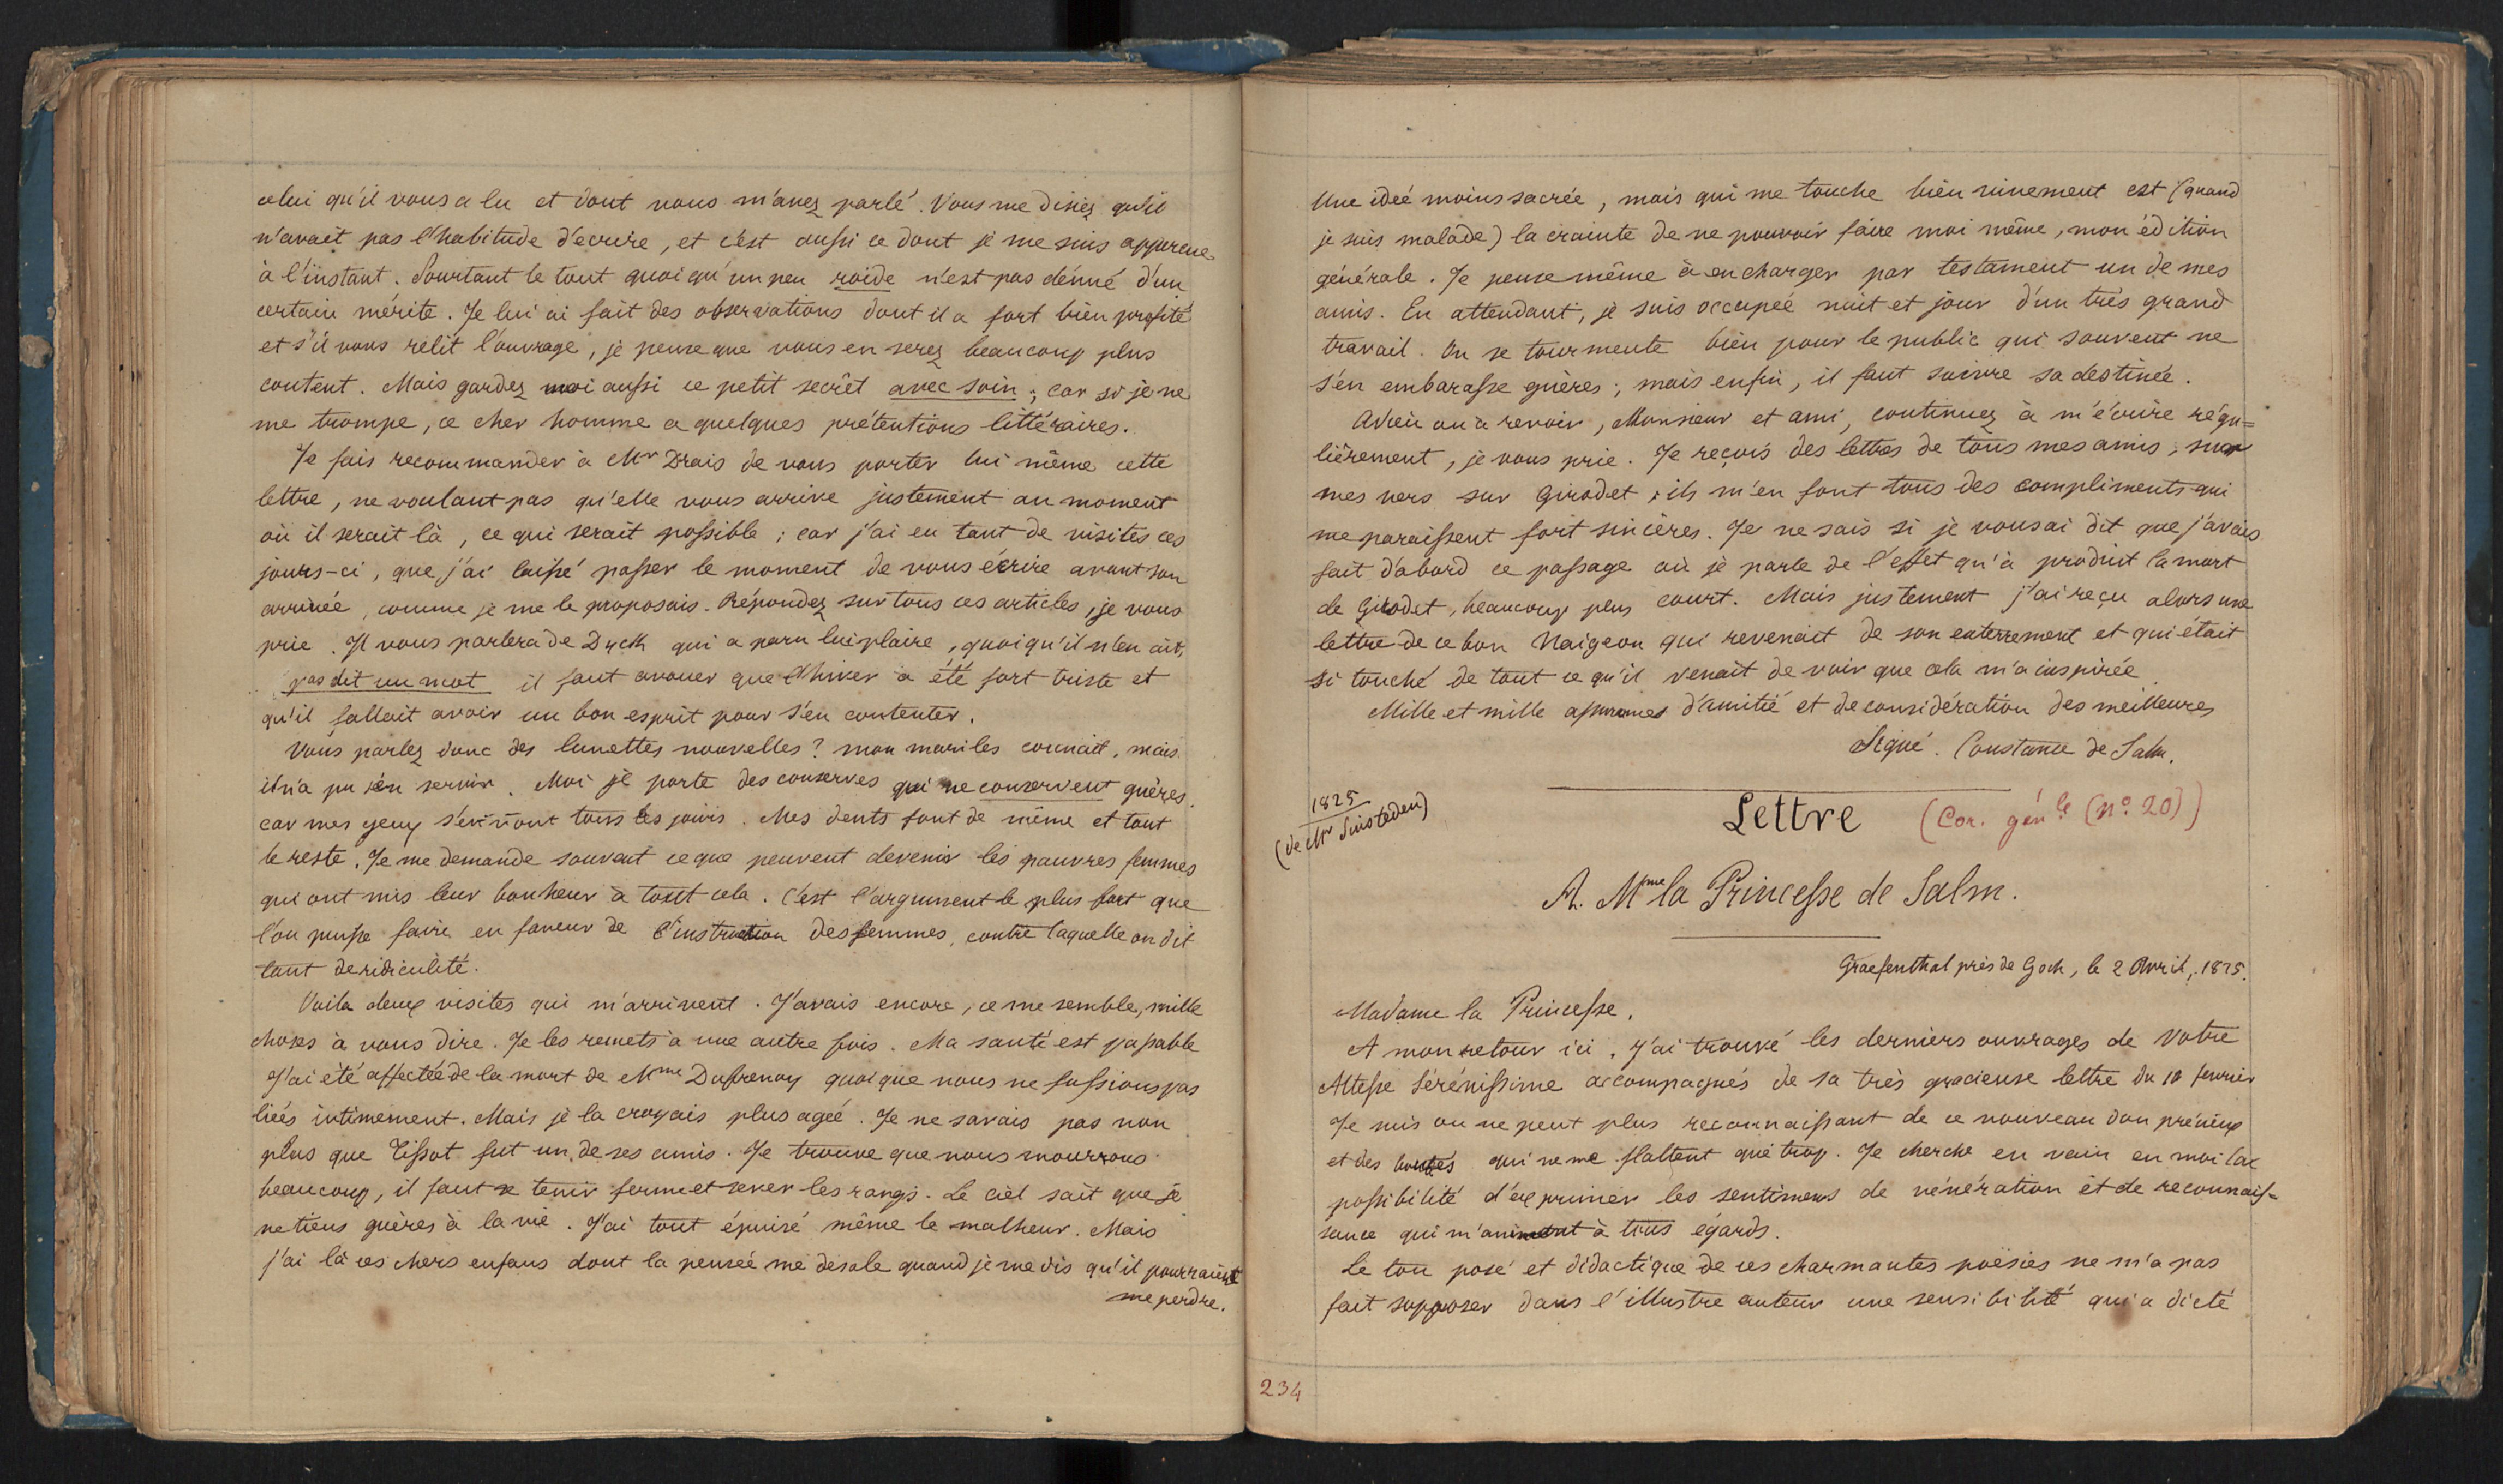 celui qu'il vous a lu et dont vous m'avez parlé. Vous me disiez qu'il
n'avait pas l'habitude d'écrire, et c'est aussi ce dont je me suis apperçue
à l'instant. Pourtant le tout quoiqu'un peu roide n'est pas dénué d'un
certain mérite. Je lui ai fait des observations dont il a fort bien profité
et s'il vous relit l'ouvrage, je pense que vous en serez beaucoup plus
content. Mais gardez moi aussi ce petit secrêt avec soin ; car si je ne
me trompe, ce cher homme a quelques prétentions littéraires.
Je fais recommander à Mr Drais de vous porter lui même cette
lettre, ne voulant pas qu'elle vous arrive justement au moment
où il serait là, ce qui serait possible ; car j'ai eu tant de visites ces
jours-ci, que j'ai laissé passer le moment de vous écrire avant son
arrivée, comme je me le proposais. Répondez sur tous ces articles, je vous
prie. Il vous parlera de Dyck qui a paru lui plaire, quoiqu'il n'en ait,
pas dit un mot il faut avouer que l'hiver a été fort triste et
qu'il fallait avoir un bon esprit pour s'en contenter.
Vous parlez donc des lunettes nouvelles ? mon mari les connait, mais
il n'a pu s'en servir. Moi je porte des conserves qui ne conservent guères.
car mes yeux s'en vont tous les jours. Mes dents font de même et tout
le reste. Je me demande souvent ce que peuvent devenir les pauvres femmes
qui ont mis leur bonheur à tout cela. C'est l'argument le plus fort que
l'on puisse faire en faveur de l'instruction des femmes, contre laquelle on dit
tant de ridiculité.
Voila deux visites qui m'arrivent. J'avais encore, ce me semble, mille
choses à vous dire. Je les remets à une autre fois. Ma santé est passable
J'ai été affectée de la mort de Mme Dufrenoy quoique nous ne fussions pas
liées intimement. Mais je la croyais plus agée. Je ne savais pas non
plus que Tissot fut un de ses amis. Je trouve que nous mourrons
beaucoup, il faut se tenir ferme et serrer les rangs. Le ciel sait que je
ne tiens guères à la vie. J'ai tout épuisé même le malheur. Mais
j'ai là ces chers enfans dont la pensée me désole quand je me dis qu'il pourraient
me perdre.
Une idée moins sacrée, mais qui me touche bien vivement est (quand
je suis malade) la crainte de ne pouvoir faire moi même, mon édition
générale. Je pense même à en charger par testament un de mes
amis. En attendant, je suis occupée nuit et jour d'un très grand
travail. On se tourmente bien pour le public qui souvent ne
s'en embarasse guères ; mais enfin, il faut suivre sa destinée.
Adieu ou à revoir, Monsieur et ami, continuez à m'écrire régu=
lièrement, je vous prie. Je reçois des lettres de tous mes amis, sur
mes vers sur Girodet, ils m'en font tous des compliments qui
me paraissent fort sincères. Je ne sais si je vous ai dit que j'avais
fait d'abord ce passage où je parle de l'effet qu'à produit la mort
de Girodet, beaucoup plus court. Mais justement j'ai reçu alors une
lettre de ce bon Naigeon qui revenait de son enterrement et qui était
si touché de tout ce qu'il venait de voir que cela m'a inspirée.
Mille et mille assurances d'amitié et de considération des meilleures
Signé. Constance de Salm.
1825
(de Mr Sinsteden)
Lettre (Cor. génle (n° 20))
A. Mme la Princesse de Salm.
Graefenthal près de Goch, le 2 Avril, 1825.
Madame la Princesse,
A mon retour ici, j'ai trouvé les derniers ouvrages de Votre
Altesse Sérénissime accompagnés de sa très gracieuse lettre du 18 fevrier
Je suis on ne peut plus reconnaissant de ce nouveau don précieux
et des bontés qui ne me flattent que trop. Je cherche en vain en moi la
possibilité d'exprimer les sentimens de vénération et de reconnais=
sance qui m'animent à tous égards.
Le ton posé et didactique de ces charmantes poësies ne m'a pas
fait supposer dans l'illustre auteur une sensibilité qui a dicté
234